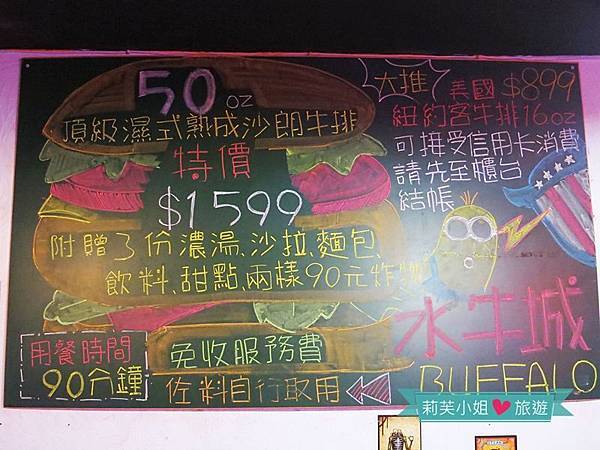 50 oz
頂級濕式熟成沙朗牛排
特價
$1599
附贈3份濃湯、沙拉、麵包、
飲料、甜點、兩樣90元炸物
用餐時間
90分鐘
免收服務費
佐料自行取用
大推
美國 $899
紐約客牛排16oz
可接受信用卡消費
請先至櫃台
結帳
水牛城
BUFFALO
莉芙小姐 旅遊